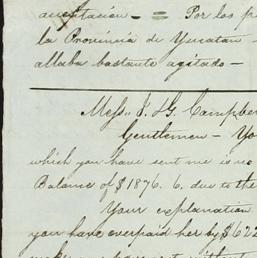 aceptacion — = Por los p
la Provincia de Yucatan —
allaba bastante agitado —
Mess. J. & G. Campbe
Gentlemen — Yo
which you have sent me is no
Balance of $1876.6. due to the
Your explanation
you have overpaid her by $622